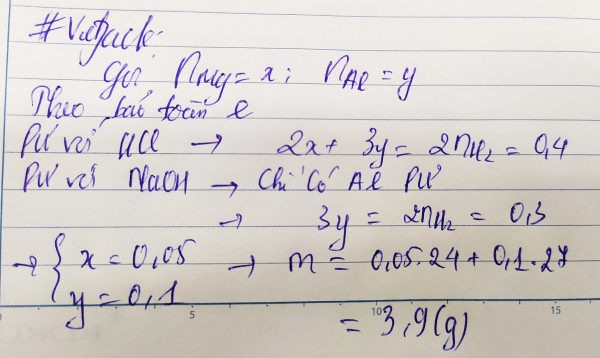 #Vietjack.
Gọi nMg = x; nAl = y
Theo bảo toàn e
Pư với HCl → 2x + 3y = 2nH₂ = 0,4
Pư với NaOH → Chỉ có Al Pư
→ 3y = 2nH₂ = 0,3
→ { x = 0,05 → m = 0,05.24 + 0,1.27
y = 0,1
= 3,9(g)
5 10 15